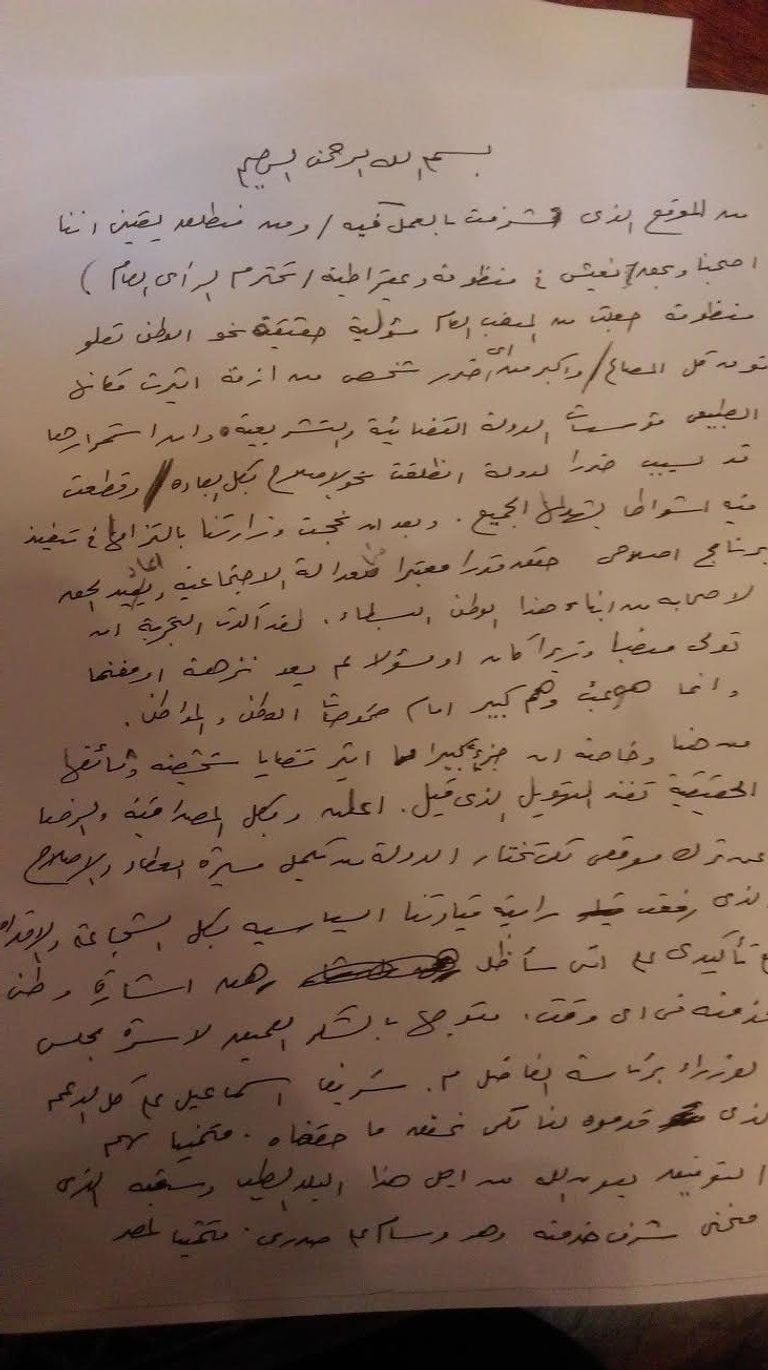 بسم الله الرحمن الرحيم
من الموقع الذى شرفت بالعمل فيه / ومن منطلق يقينى اننا
اصبحنا وبحق نعيش فى منظومة ديمقراطية / تحترم الرأى العام )
منظومة جعلت من المنصب العام مسؤلية حقيقية نحو الوطن تعلو
فوق كل المصالح / واكبر من اى ضرر شخصى من ازمة اثيرت مكانها
الطبيعى مؤسسات الدولة القضائية والتشريعية وان استمرارها
قد يسبب ضررا لدولة انطلقت نحو الاصلاح بكل ارادة / وقطعت
فيه اشواطا يشهد لها الجميع . وبعد ان نجحت وزارتنا بالتزامها فى تنفيذ
برنامج اصلاحى حقق قدرا معتبرا من العدالة الاجتماعية واعاد الحق
لاصحابه من ابناء هذا الوطن البسطاء . لقد أكدت التجربة ان
تولى منصبا وزيرا كان او مسؤلا لم يعد نزهة او مغنما
وانما هو عبئ وهم كبير امام طموحات الوطن والمواطن .
من هنا وخاصة ان جزء كبيرا مما اثير قضايا شخصية وثائقها
الحقيقية تفند التهويل الذى قيل . اعلن وبكل المصداقية والرضا
عن ترك موقعى لكى تختار الدولة من يكمل مسيرة العطاء والاصلاح
الذى رفعت رايته قيادتنا السياسيه بكل الشجاعة والاقدام
مع تأكيدى على اننى سأظل رهن اشارة وطنى
لخدمته فى اى وقت . متوجها بالشكر العميق لاسرة مجلس
الوزراء برئاسة الفاضل م . شريف اسماعيل على كل الدعم
الذى قدموه لنا لكى نحقق ما حققناه . متمنيا لهم
التوفيق بعون الله من اجل هذا البلد الطيب وشعبه الذى
منحنى شرف خدمته وهو وسام على صدرى . متمنيا لمصر